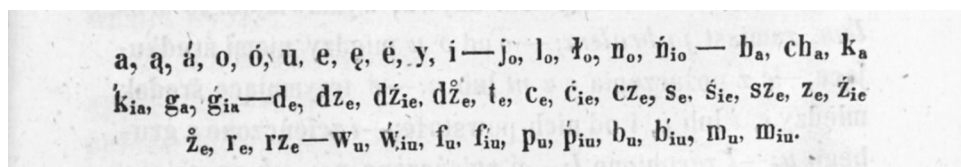 a, ą, á, o, ó, u, e, ę, é, y, i — jₒ, lₒ, łₒ, nₒ, ńᵢₒ — hₐ, chₐ, kₐ
ḱᵢₐ, gₐ, ǵᵢₐ — dₑ, dzₑ, dźᵢₑ, dz̊ₑ, tₑ, cₑ, ćᵢₑ, czₑ, sₑ, śᵢₑ, szₑ, zₑ, źᵢₑ
z̊ₑ, rₑ, rzₑ — wᵤ, ẃᵢᵤ, fᵤ, f́ᵢᵤ, pᵤ, ṕᵢᵤ, bᵤ, b́ᵢᵤ, mᵤ, mᵢᵤ.